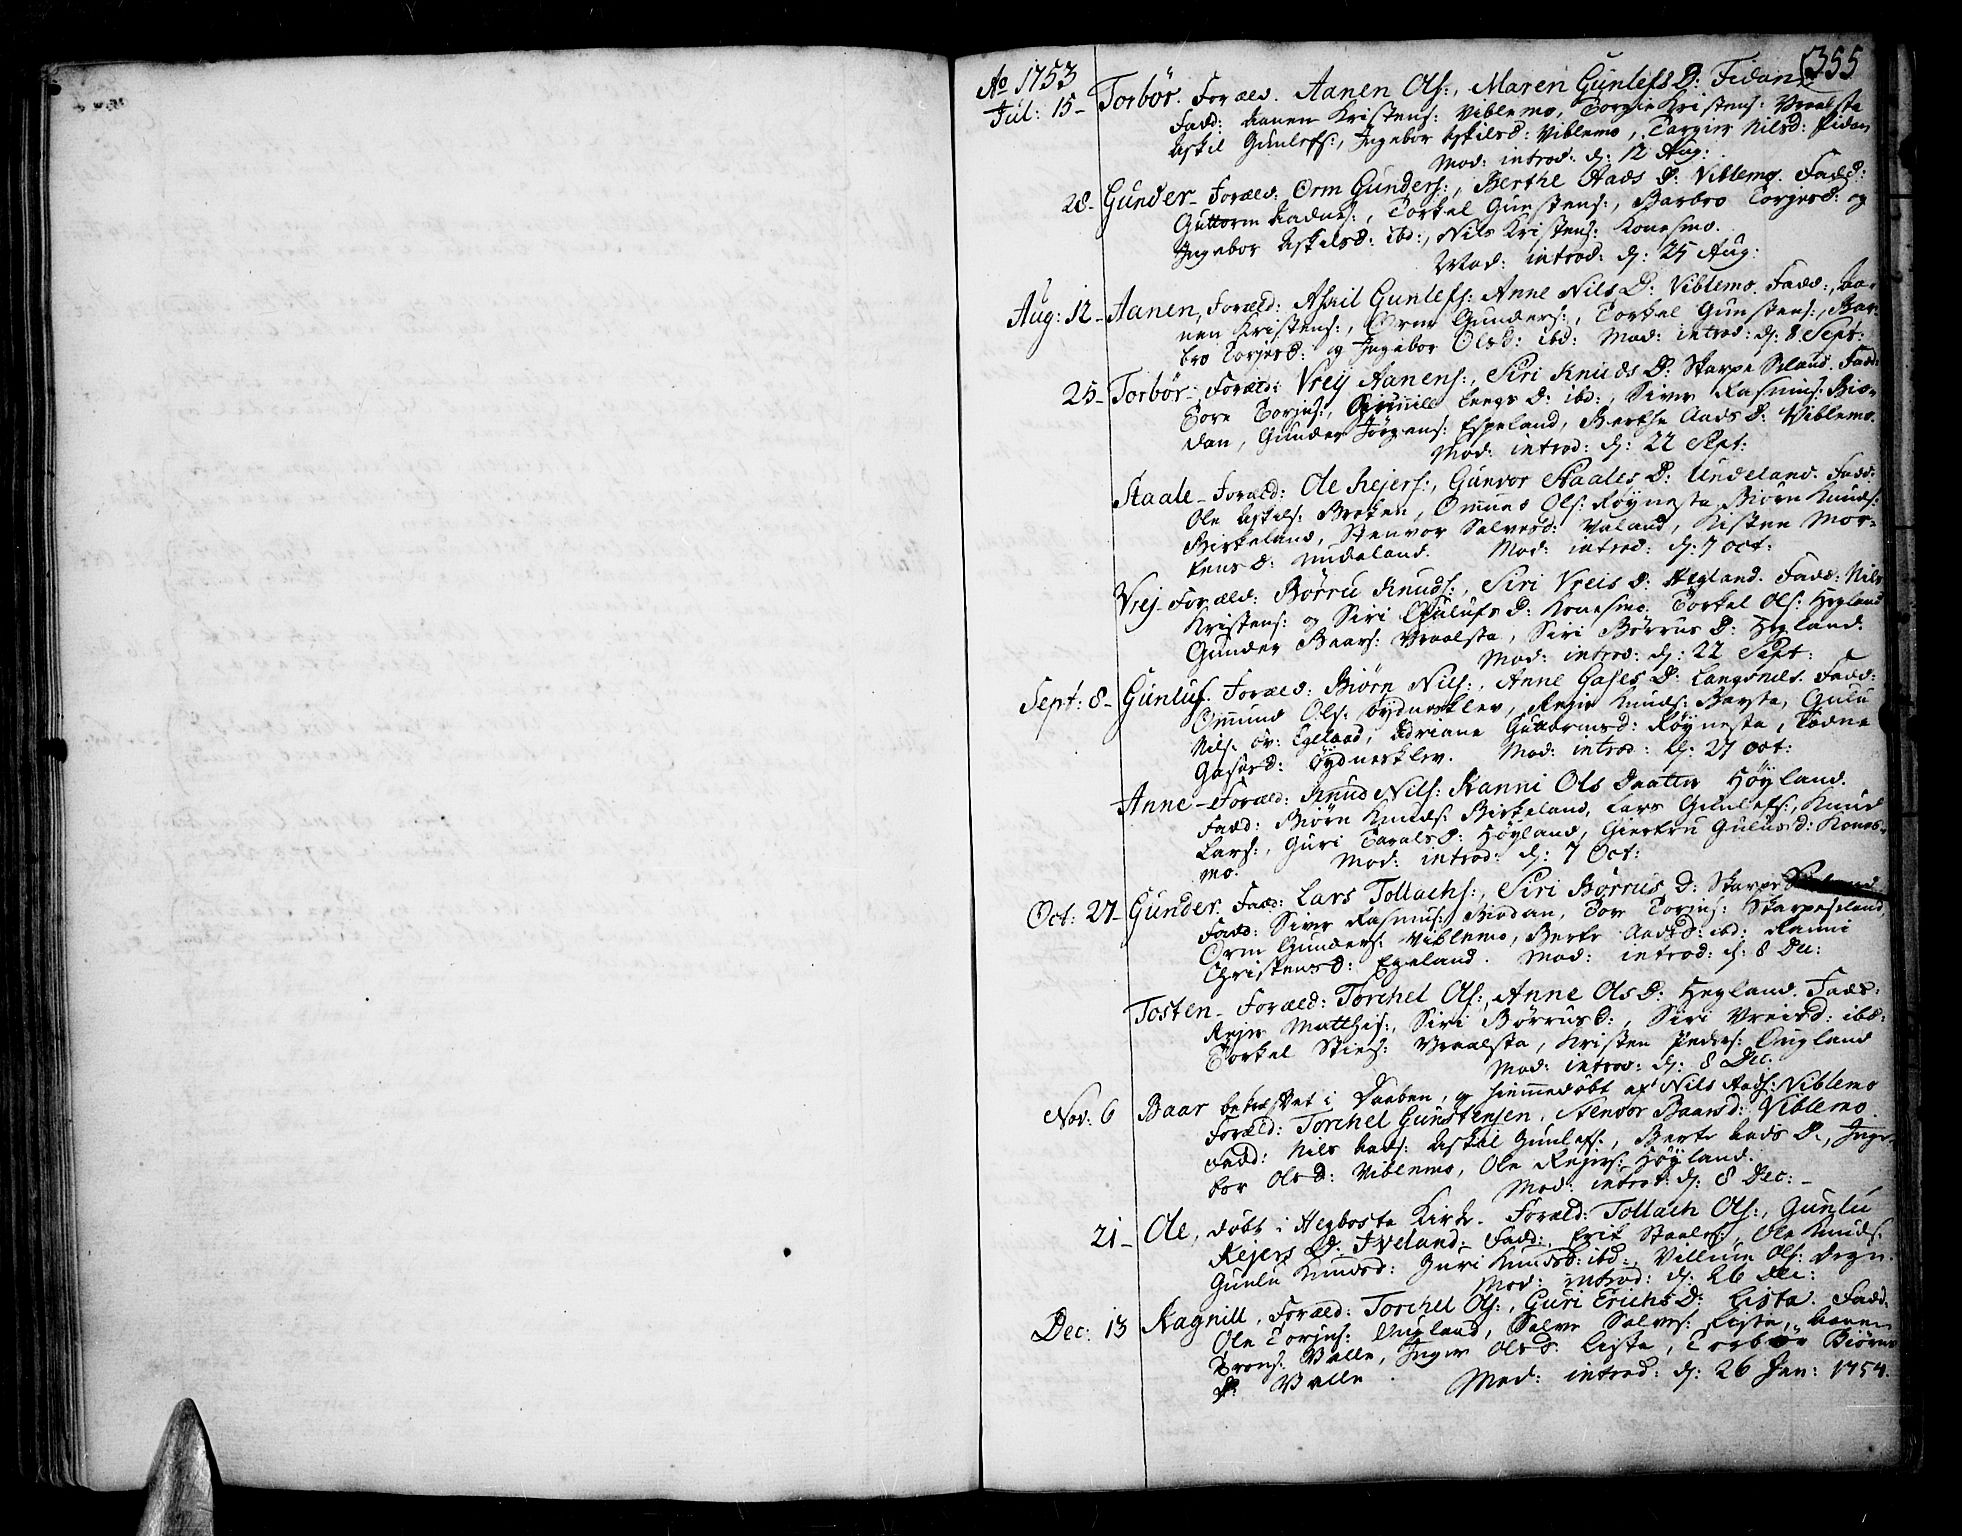 355
Ao 1753
Jul: 15- Torbör. Foræld. Aanen Ols:, Maren Gunlefs D: Fidan
Fadd: Aanen Kristens: Viblemo, Torgier Kristens: Vraalsta
Askil Gunlefs:, Ingebor Askilsd: Viblemo, Targier Nilsd: Fidan
Mod: introd: d: 12 Aug:
28- Gunder- Foræld. Orm Gunders:, Berthe Aads D: Viblemo. Fadd:
Guttorm Aadnes:, Torkel Gunstens:, Barbro Torjersd: og
Ingebor Askilsd: ibd:, Nils Kristens: Konesmo.
Mod: introd: d: 25 Aug:
Aug: 12- Aanen, Foræld: Askil Gunlefs: Anne Nils D: Viblemo. Fadd:, Aa-
nen Kristens:, Orm Gunders:, Torkel Gunstens:, Bar-
bro Torjersd: og Ingebor Olsd: ibd: Mod: introd: d: 8 Sept:
25- Torbör- Foræld: Vrej Aanens:, Siri Knuds D: Skarpe Seland. Fadd:
Tore Torjus:, Gunnild Lergs D: ibd:, Siver Rasmus: Bio-
dan, Gunder Jörgens: Espeland, Berthe Aads D: Viblemo.
Mod: introd: d: 22 Sept:
Staale- Foræld: Ole Rejers:, Gunvor Staales D: Undeland. Fadd:
Ole Askils: Breken, Omund Ols: Röynesta, Biörn Knuds:
Birkeland, Stenvor Salvesd: Valand, Kisten Mor-
tens D: Undeland. Mod: introd: d: 7 oct:
Vrej- Foræld: Börru Knuds:, Siri Vreis D: Hegland. Fadd: Nils
Kristens: og Siri Gulufs D: Konesmo. Torkel Ols: Hegland
Gunder Baars: Vraalsta, Siri Börrus D: Hegland.
Mod: introd: d: 22 Sept:
Sept: 8- Gunluf. Foræld: Biörn Nils:, Anne Gases D: Langones. Fadd:
Omund Ols: Öydnesklev, Rejer Knuds: Barsta, Gulu
Nils. öv: Egeland, Adriane Guttormsd: Röynesta, Tadne
Gasesd: Öydnesklev. Mod: introd: d: 27 oct:
Anne- Foræld: Knud Nils: Ranni Ols Daatter Höyland.
Fadd: Biörn Knuds: Birkeland, Lars Gunlefs:, Knud
Lars:, Guri Taralsd: Höyland, Giertru Gulusd: Kones-
mo. Mod: introd: d: 7 Oct:
Oct: 27- Gunder. Foræld: Lars Tollachs:, Siri Börrus D: Skarpe Seland
Fadd: Siver Rasmus: Biodan, Tor Torjus: Skarpeseland
Orm Gunders: Viblemo, Berte Aadsd: ibd: Ranni
Christens D: Egeland. Mod: introd: d: 8 Dec:
Tosten- Foræld: Torchel Ols:, Anne Ols D: Hegland. Fadd:
Rejer Matthis:, Siri Börrus D:, Siri Vreisd: ibd:
Torkel Stiens: Vraalsta, Kristen Peders: Öugland
Mod: introd: d: 8 Dec.
Nov: 6 Baar bekræftet i Daaben, og hiemmedöbt af Nils Aads: Viblemo
Foræld: Torchel Gunstensen, Stenvor Baarsd: Viblemo.
Fadd: Nils Aads: Askel Gunlefs:, Berte Aads D:, Inge-
bor Ols D: Viblemo, Ole Rejers: Höyland.
Mod: introd: d: 8 Dec:-
21- Ole, döbt i Hegbosta Kirke. Foræld: Tollach Ols:, Gunlu
Rejers D: Iveland. Fadd:, Erik Staales:, Ole Knuds:
Gunlu Knudsd: Guri Knudsd: ibd:, Villum Ols: Degn.
Mod: introd: d: 26 Dec:
Dec: 13 Ragnill, Foræld: Torchel Ols:, Guri Erichs D: Lista. Fadd:
Ole Torjus: Öugland, Salve Salves: Lista, Aanen
Trons: Valle, Inger Olsd. Lista, Torbör Biörns
D: Valle. Mod: introd: d: 26 Jan: 1754.